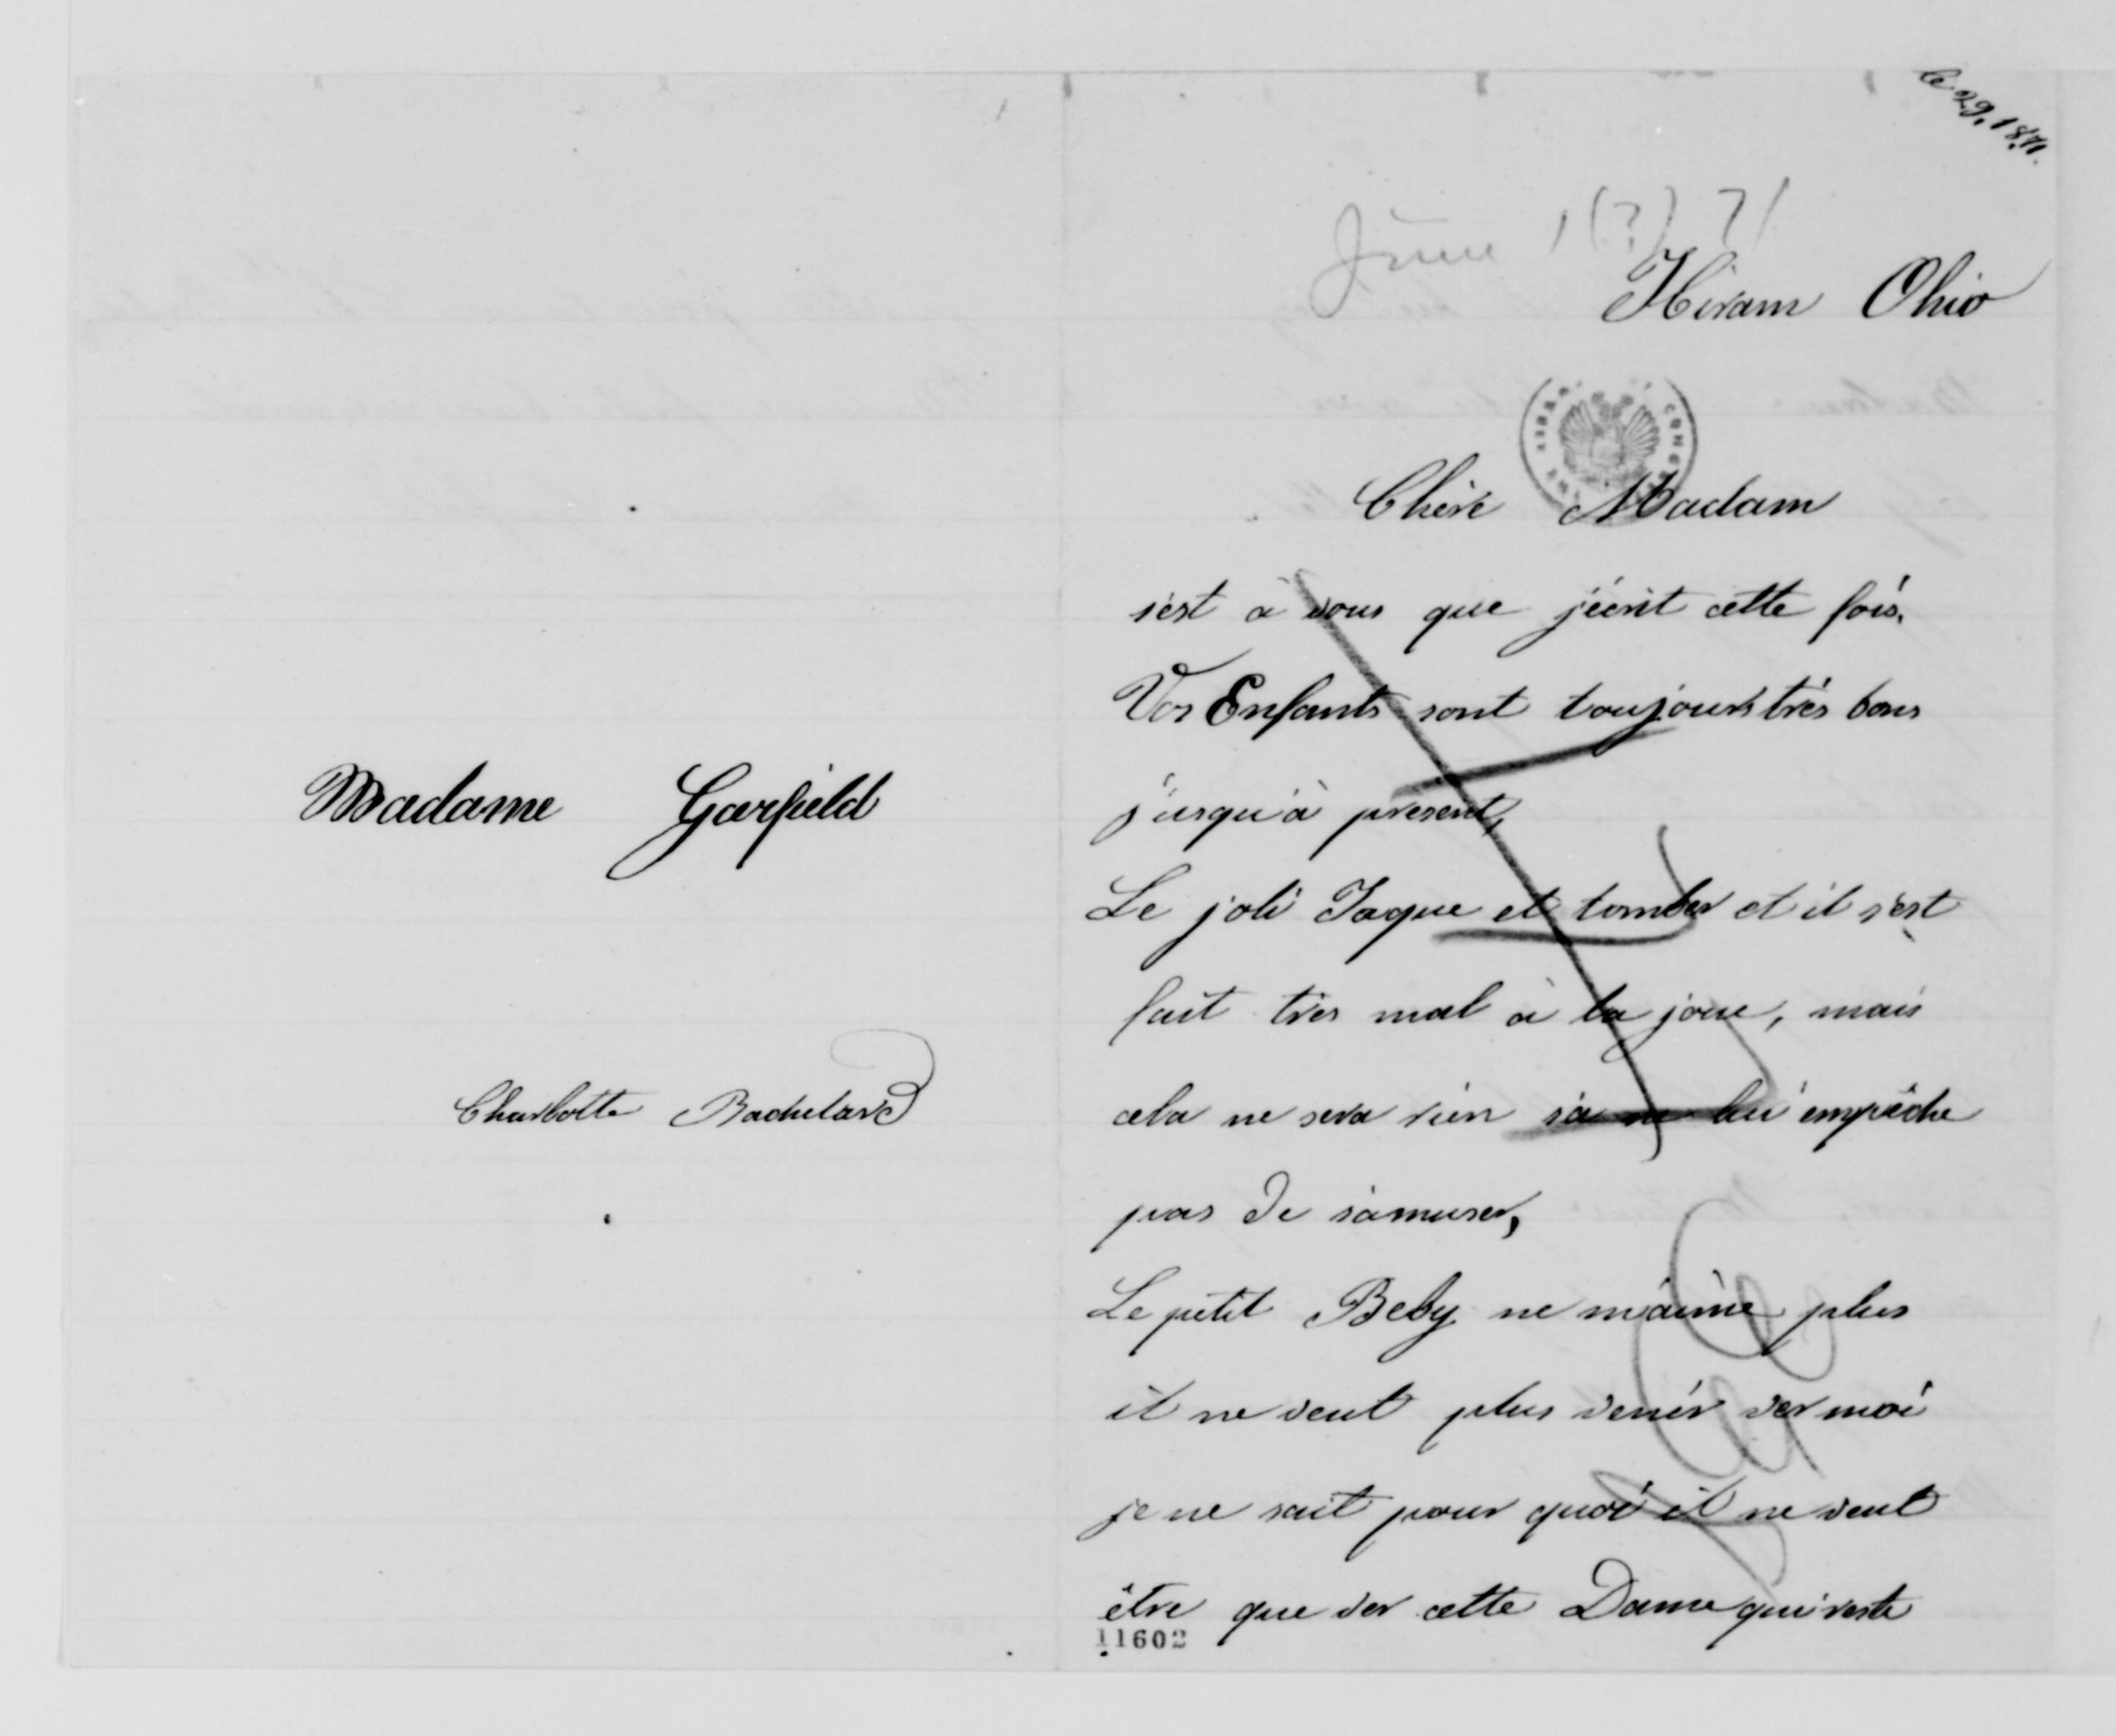 Madame Garfield
Charlotte Bachelard
le 29. 1871.
June 1(?) 71
Hiram Ohio
Chère Madam
s'est à vous que j'écrit cette fois.
Vos Enfants sont toujours très bons
j'usqu'à present,
Le joli Jaque et tomber et il s'est
fait très mal à la joue, mais
cela ne sera rien sa ne lui empêche
pas de s'amuser,
Le petit Beby ne m'aime plus
il ne veut plus venir ver moi
je ne sait pour quoi il ne veut
être que ver cette Dame qui reste
11602